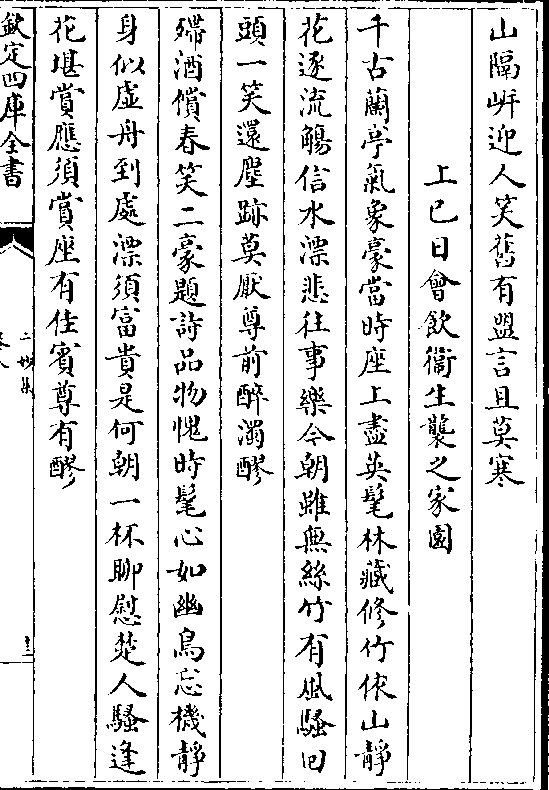 山隔岍迎人笑舊有盟言且莫寒
上巳日會飲衞生襲之家園
千古蘭亭氣象豪當時座上盡英髦林藏修竹依山靜
花逐流觴信水漂悲往事樂今朝雖無絲竹有風騷回
頭一笑還塵跡莫厭尊前醉濁醪
殢酒償春笑二豪題詩品物愧時髦心如幽鳥忘機靜
身似虛舟到處漂須富貴是何朝一杯聊慰楚人騷逢
花堪賞應須賞座有佳賓尊有醪
欽定四庫全書
二妙集